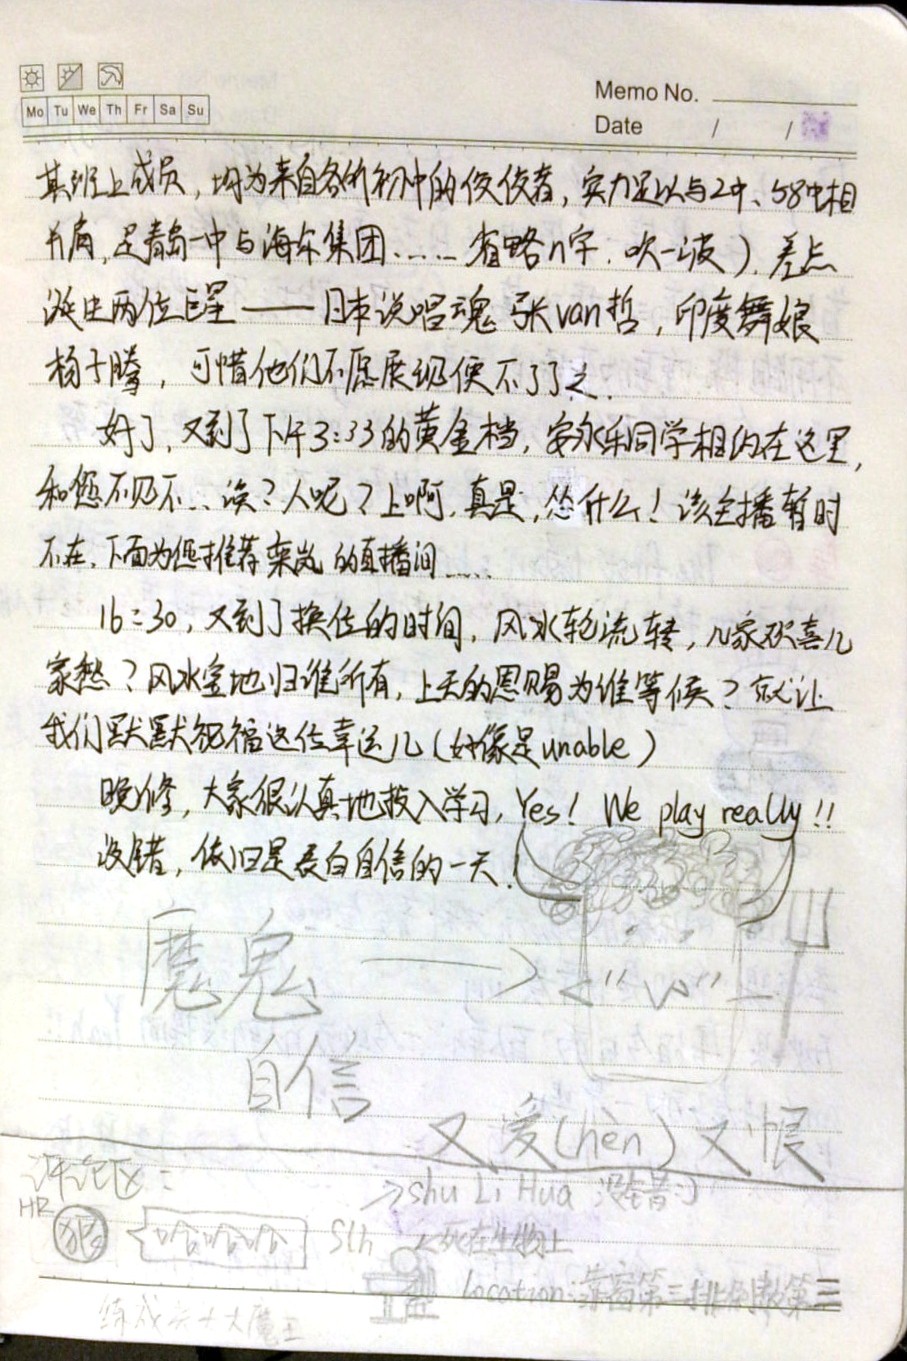 Memo No.
Mo Tu We Th Fr Sa Su
Date / /
其班上成员，均为来自各所初中的佼佼者，实力足以与2中、58中相
并肩，是青岛一中与海尔集团……省略n字，吹一波），差点
诞生两位巨星——日本说唱魂 张van哲，印度舞娘
杨子腾，可惜他们不愿展现便不了了之.
好了，又到了下午3:33的黄金档，安永乐同学相约在这里，
和您不见不…诶？人呢？上啊，真是，怂什么！该主播暂时
不在，下面为您推荐栾岚的直播间……
16:30，又到了换位的时间，风水轮流转，几家欢喜几
家愁？风水宝地归谁所有，上天的恩赐为谁等候？就让
我们默默祝福这位幸运儿（好像是unable）
晚修，大家很认真地投入学习，Yes! We play really!!
没错，依旧是表白自信的一天！
魔鬼
自信
又爱(hèn)又恨
评论区:
→shu Li Hua 没错习
HR
哈哈哈哈 Sth
死在生物上
location:靠窗第三排倒数第三